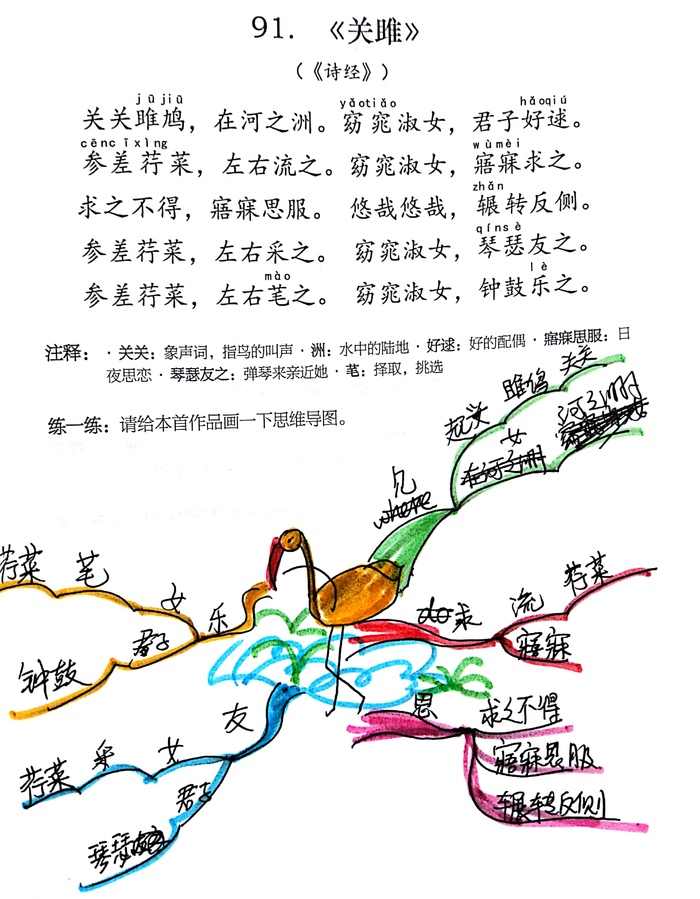 91. 《关雎》
（《诗经》）
jū jiū yǎotiǎo hǎoqiú
关关雎鸠，在河之洲。窈窕淑女，君子好逑。
cēnc īxìng wùmèi
参差荇菜，左右流之。窈窕淑女，寤寐求之。
zhǎn
求之不得，寤寐思服。 悠哉悠哉，辗转反侧。
qínsè
参差荇菜，左右采之。 窈窕淑女，琴瑟友之。
mào lè
参差荇菜，左右芼之。 窈窕淑女，钟鼓乐之。
注释： · 关关：象声词，指鸟的叫声 · 洲：水中的陆地 · 好逑：好的配偶 · 寤寐思服：日
夜思恋 · 琴瑟友之：弹琴来亲近她 · 芼：择取，挑选
练一练：请给本首作品画一下思维导图。
关关
雎鸠
起头
河之洲
女
见
where
荇菜
流
求
寤寐
思
求之不得
寤寐思服
辗转反侧
友
女
采
荇菜
君子
琴瑟
乐
女
芼
荇菜
君子
钟鼓